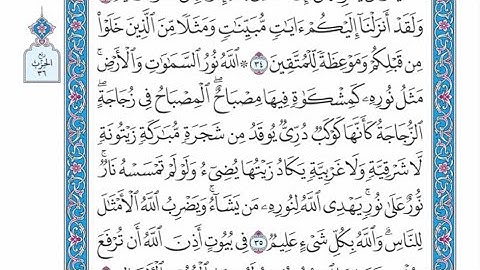 وَلَقَدْ أَنزَلْنَا إِلَيْكُمْ ءَايَٰتٍ مُّبَيِّنَٰتٍ وَمَثَلًا مِّنَ ٱلَّذِينَ خَلَوْا۟
مِن قَبْلِكُمْ وَمَوْعِظَةً لِّلْمُتَّقِينَ ٣٤ ۞ ٱللَّهُ نُورُ ٱلسَّمَٰوَٰتِ وَٱلْأَرْضِ ۚ
مَثَلُ نُورِهِۦ كَمِشْكَوٰةٍ فِيهَا مِصْبَاحٌ ۖ ٱلْمِصْبَاحُ فِى زُجَاجَةٍ ۖ
ٱلزُّجَاجَةُ كَأَنَّهَا كَوْكَبٌ دُرِّىٌّ يُوقَدُ مِن شَجَرَةٍ مُّبَٰرَكَةٍ زَيْتُونَةٍ
لَّا شَرْقِيَّةٍ وَلَا غَرْبِيَّةٍ يَكَادُ زَيْتُهَا يُضِىٓءُ وَلَوْ لَمْ تَمْسَسْهُ نَارٌ ۚ
نُّورٌ عَلَىٰ نُورٍ ۗ يَهْدِى ٱللَّهُ لِنُورِهِۦ مَن يَشَآءُ ۚ وَيَضْرِبُ ٱللَّهُ ٱلْأَمْثَٰلَ
لِلنَّاسِ ۗ وَٱللَّهُ بِكُلِّ شَىْءٍ عَلِيمٌ ٣٥ فِى بُيُوتٍ أَذِنَ ٱللَّهُ أَن تُرْفَعَ
ربع
الحزب
٣٦